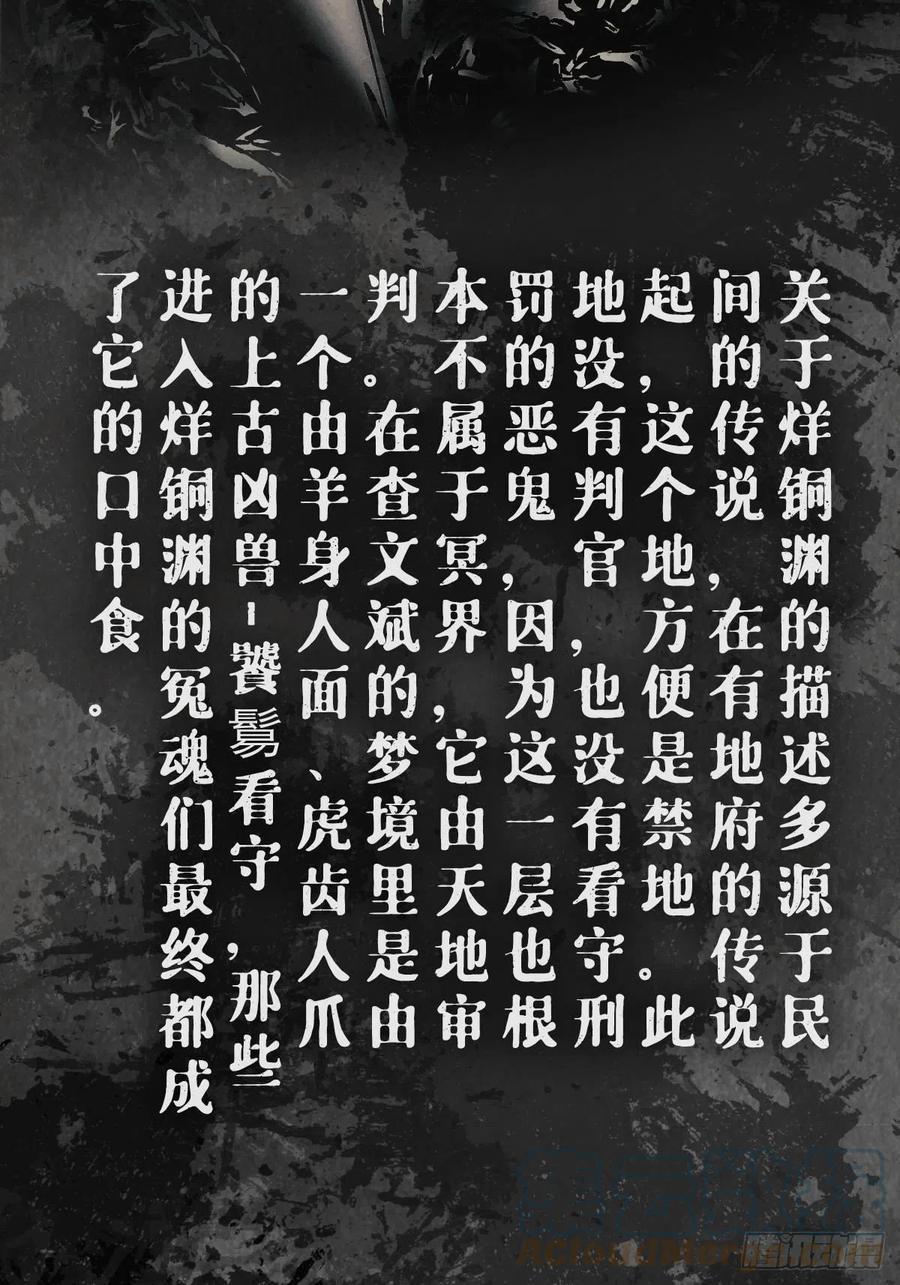 关于烊铜渊的描述多源于民
间的传说,在有地府的传说
起,这个地方便是禁地。此
地没有判官,也没有看守。刑
罚的恶鬼,因为这一层也根
本不属于冥界,它由天地审
判。在查文斌的梦境里是由
一个由羊身人面、虎齿人爪
的上古凶兽-饕鬄看守,那些
进入烊铜渊的冤魂们最终都成
了它的口中食。
AcloudMerge.com
腾讯动漫